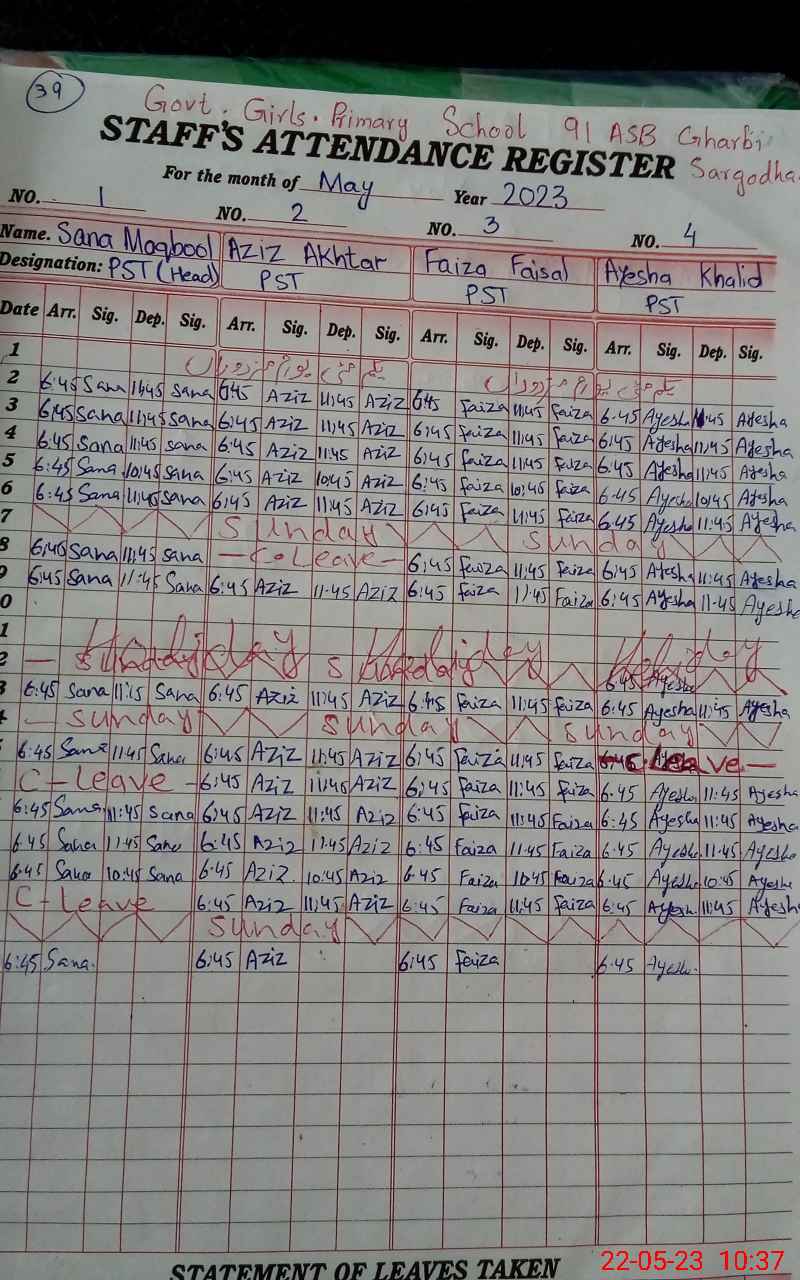 39
Govt. Girls. Primary School 91 ASB Gharbi
STAFF'S ATTENDANCE REGISTER Sargodha
For the month of May Year 2023
NO. 1 NO. 2 NO. 3 NO. 4
Name. Sana Maqbool Aziz Akhtar Faiza Faisal Ayesha Khalid
Designation: PST (Head) PST PST PST
Date Arr. Sig. Dep. Sig. Arr. Sig. Dep. Sig. Arr. Sig. Dep. Sig. Arr. Sig. Dep. Sig.
1
2 6:45 Sana 11:45 Sana 6:45 Aziz 11:45 Aziz 6:45 Faiza 11:45 Faiza 6:45 Ayesha 11:45 Ayesha
3 6:45 Sana 11:45 Sana 6:45 Aziz 11:45 Aziz 6:45 Faiza 11:45 Faiza 6:45 Ayesha 11:45 Ayesha
4 6:45 Sana 11:45 Sana 6:45 Aziz 11:45 Aziz 6:45 Faiza 11:45 Faiza 6:45 Ayesha 11:45 Ayesha
5 6:45 Sana 10:45 Sana 6:45 Aziz 10:45 Aziz 6:45 Faiza 10:45 Faiza 6:45 Ayesha 10:45 Ayesha
6 6:45 Sana 11:45 Sana 6:45 Aziz 11:45 Aziz 6:45 Faiza 11:45 Faiza 6:45 Ayesha 11:45 Ayesha
7 Sunday Sunday
8 6:45 Sana 11:45 Sana - C-Leave - 6:45 Faiza 11:45 Faiza 6:45 Ayesha 11:45 Ayesha
9 6:45 Sana 11:45 Sana 6:45 Aziz 11:45 Aziz 6:45 Faiza 11:45 Faiza 6:45 Ayesha 11:45 Ayesha
0
1
2 Holiday Holiday Holiday
3 6:45 Sana 11:15 Sana 6:45 Aziz 11:45 Aziz 6:45 Faiza 11:45 Faiza 6:45 Ayesha 11:45 Ayesha
- Sunday Sunday Sunday
6:45 Sana 11:45 Sana 6:45 Aziz 11:45 Aziz 6:45 Faiza 11:45 Faiza Leave -
C-Leave - 6:45 Aziz 11:45 Aziz 6:45 Faiza 11:45 Faiza 6:45 Ayesha 11:45 Ayesha
6:45 Sana 11:45 Sana 6:45 Aziz 11:45 Aziz 6:45 Faiza 11:45 Faiza 6:45 Ayesha 11:45 Ayesha
6:45 Sana 11:45 Sana 6:45 Aziz 11:45 Aziz 6:45 Faiza 11:45 Faiza 6:45 Ayesha 11:45 Ayesha
6:45 Sana 10:45 Sana 6:45 Aziz 10:45 Aziz 6:45 Faiza 10:45 Faiza 6:45 Ayesha 10:45 Ayesha
C-Leave 6:45 Aziz 11:45 Aziz 6:45 Faiza 11:45 Faiza 6:45 Ayesha 11:45 Ayesha
Sunday
6:45 Sana. 6:45 Aziz 6:45 Faiza 6:45 Ayesha
STATEMENT OF LEAVES TAKEN
22-05-23 10:37